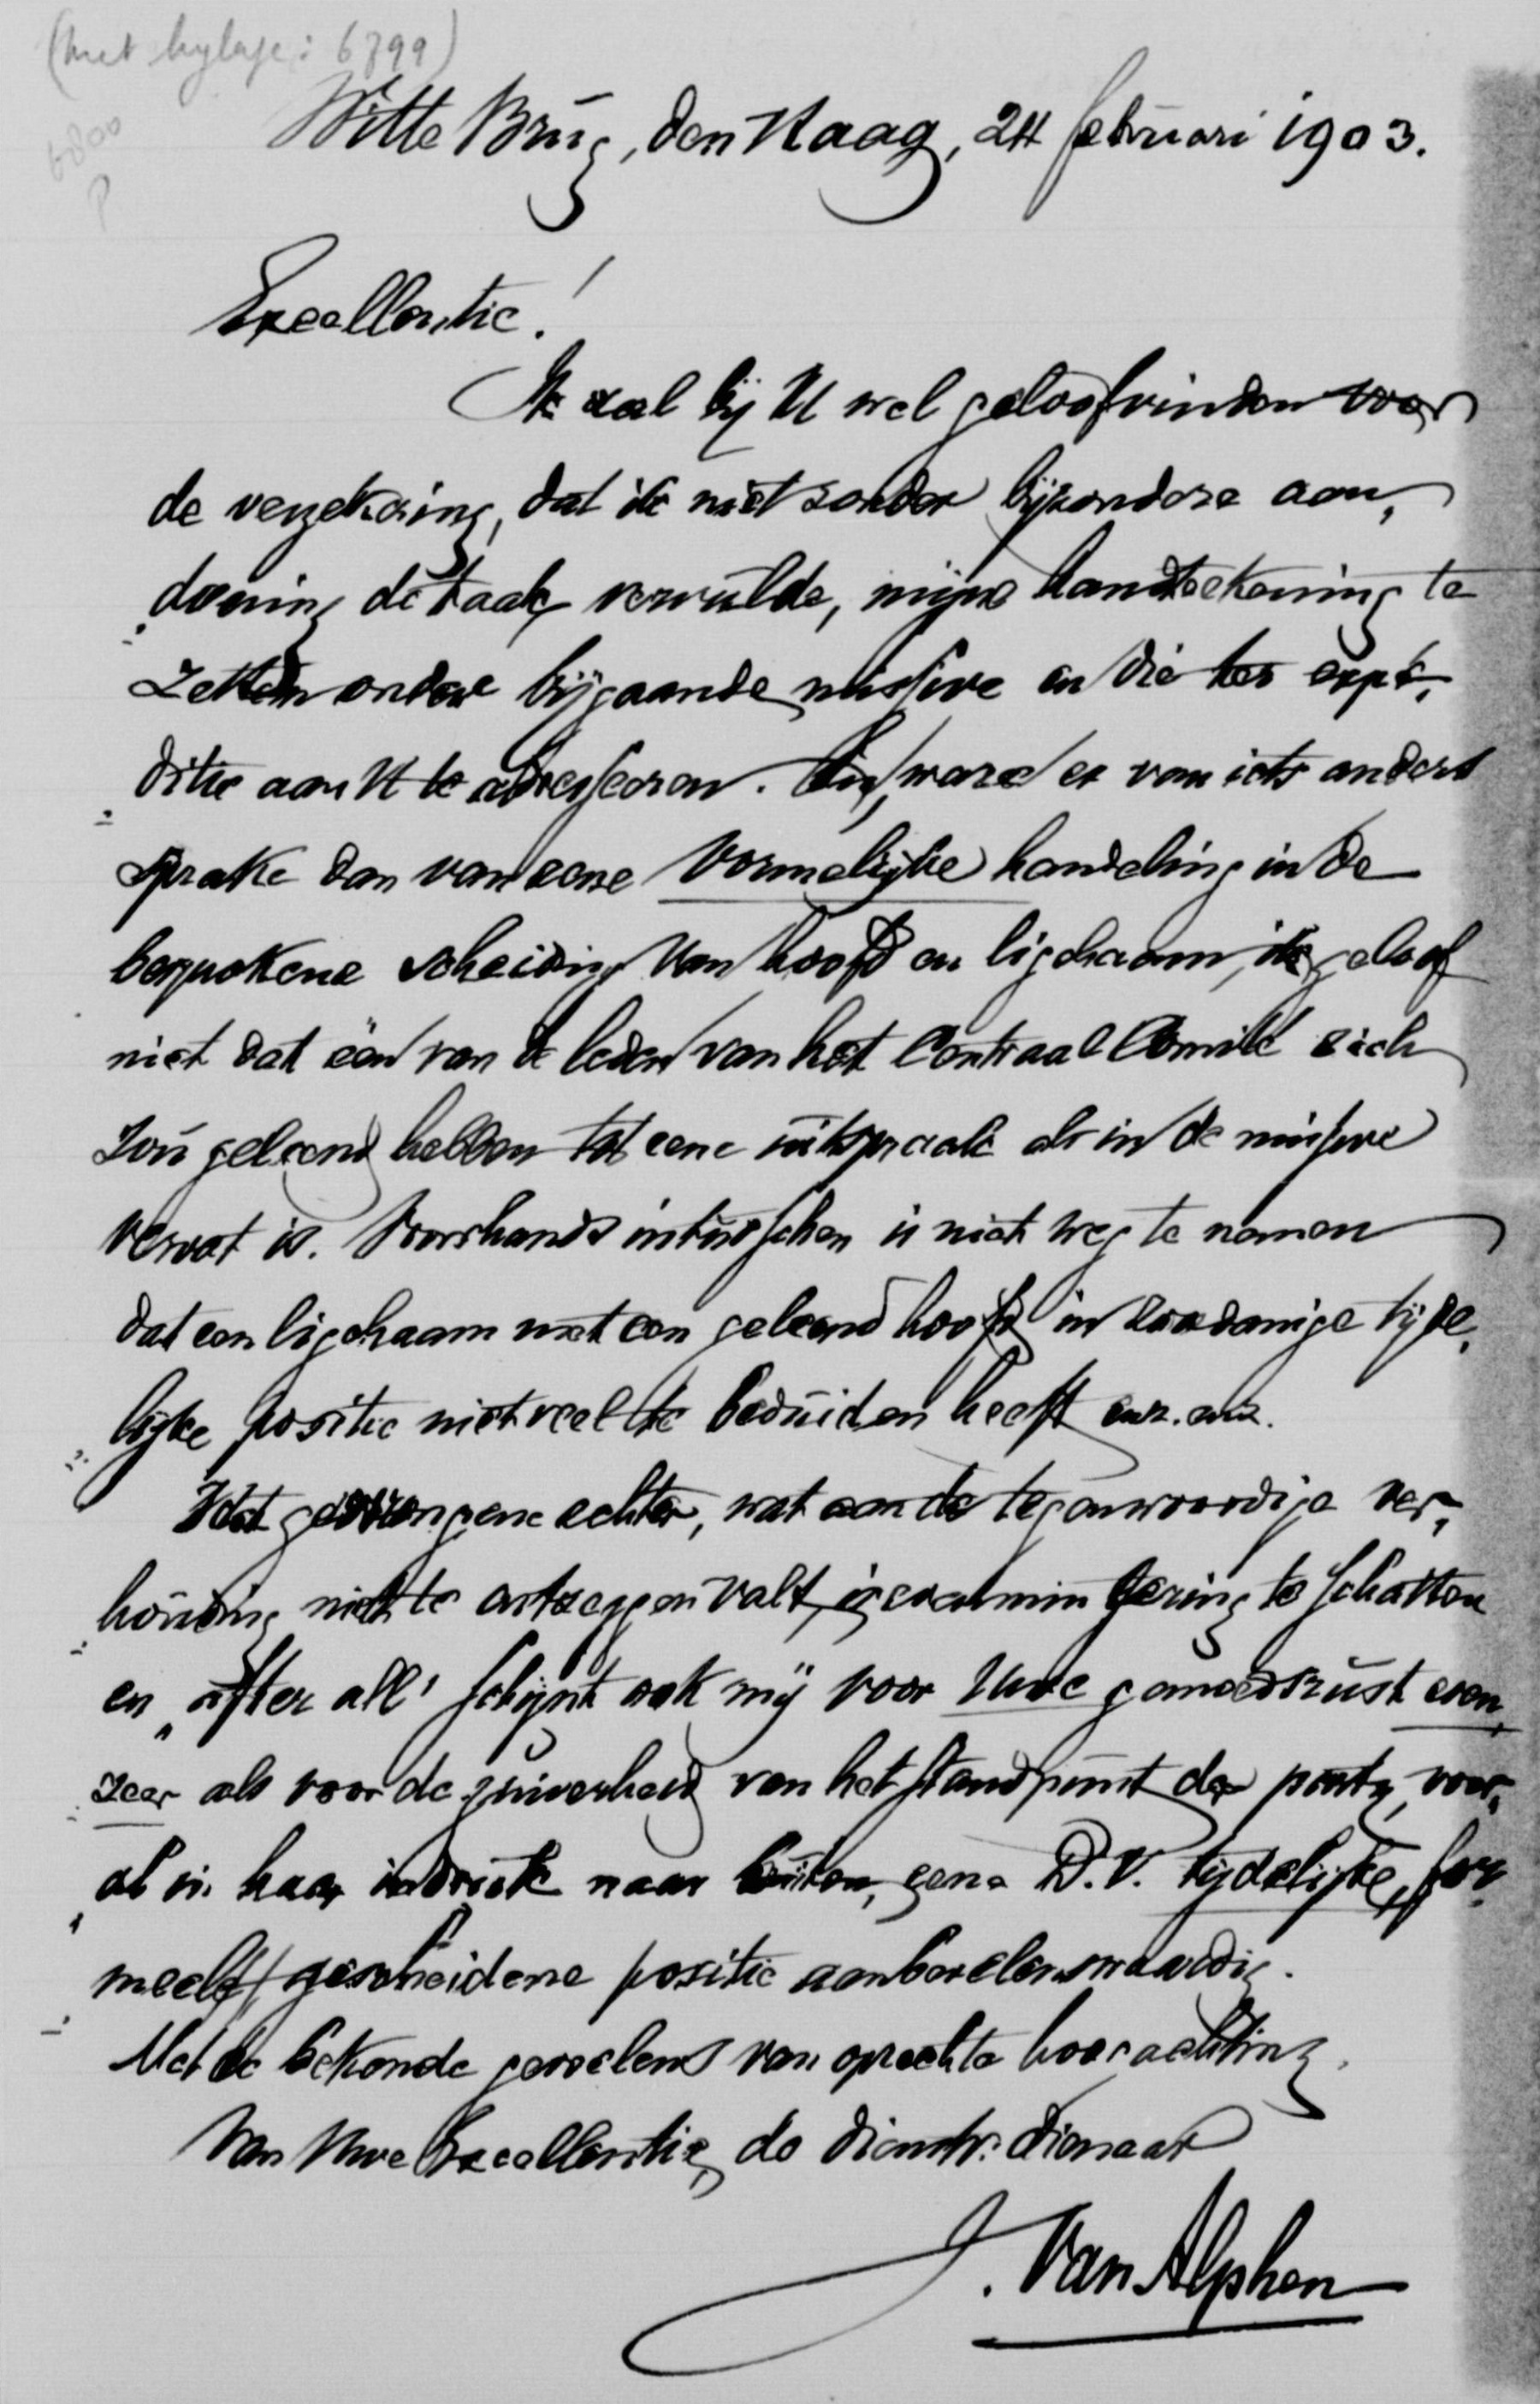 (met bylage: 6799)
6800
P
Witte Brug, den Haag, 24 februari 1903.
Excellentie!
Ik zal bij U wel geloof vinden voor
de verzekering, dat ik niet zonder bijzondere aan„
„doening de taak vervulde, mijne handteekening te
zetten onder bijgaande missive en die ter expe„
„ditie aan U te adresseeren. En, ware er van iets anders
sprake dan van eene vormelijke handeling in de
besprokene scheiding van hoofd en ligchaam, ik geloof
niet dat één van de leden van het Centraal Comité zich
zou geleend hebben tot eene uitspraak als in de missive
vervat is. Voorshands intusschen is niet weg te nemen
dat een ligchaam met een geleend hoofd in zoodanige tijde„
„lijke positie niet veel te beduiden heeft enz. enz.
Het gedwongene echter, wat aan de tegenwoordige ver„
„houding niet te ontzeggen valt, is evenmin gering te schatten
en „after all' schijnt ook mij voor Uwe gemoedsrust even„
„zeer als voor de zuiverheid van het standpunt der partij, voor„
„al in haar indruk naar buiten, eene D.V. tijdelijke, for„
„meele gescheidene positie aanbevelenswaardig.
Met de bekende gevoelens van oprechte hoogachting,
Van Uwe Excellentie, de dienstv. dienaar
J. van Alphen